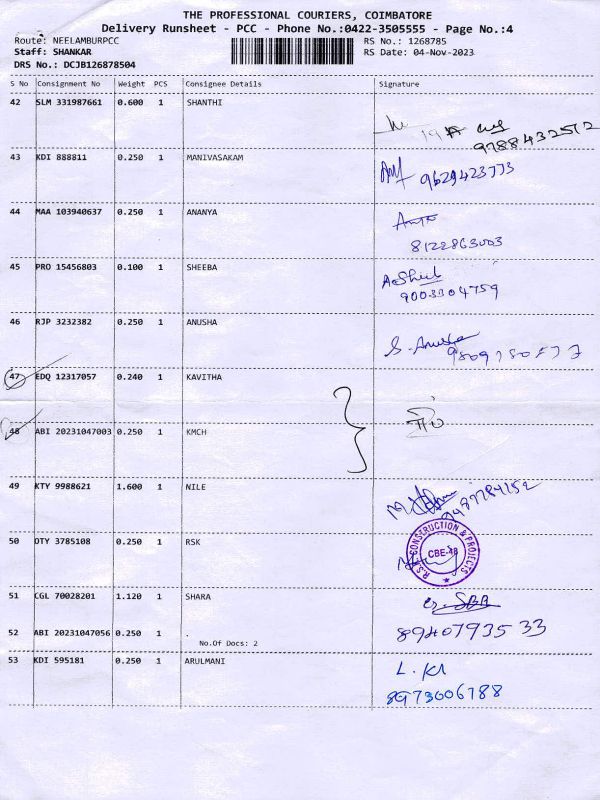 THE PROFESSIONAL COURIERS, COIMBATORE
Delivery Runsheet - PCC - Phone No.:0422-3505555 - Page No.:4
Route: NEELAMBURPCC RS No.: 1268785
Staff: SHANKAR RS Date: 04-Nov-2023
DRS No.: DCJB126878504
S No Consignment No Weight PCS Consignee Details Signature
42 SLM 331987661 0.600 1 SHANTHI
9788432512
43 KDI 888811 0.250 1 MANIVASAKAM
9629423773
44 MAA 103940637 0.250 1 ANANYA
8122863003
45 PRO 15456803 0.100 1 SHEEBA
9003304759
46 RJP 3232382 0.250 1 ANUSHA
S. Anusha
47 EDQ 12317057 0.240 1 KAVITHA
48 ABI 20231047003 0.250 1 KMCH
49 KTY 9988621 1.600 1 NILE
9487784152
50 OTY 3785108 0.250 1 RSK
R.S. CONSTRUCTION & PROJECTS
CBE-48
51 CGL 70028201 1.120 1 SHARA
52 ABI 20231047056 0.250 1 .
8940793533
No.Of Docs: 2
53 KDI 595181 0.250 1 ARULMANI
8973006788